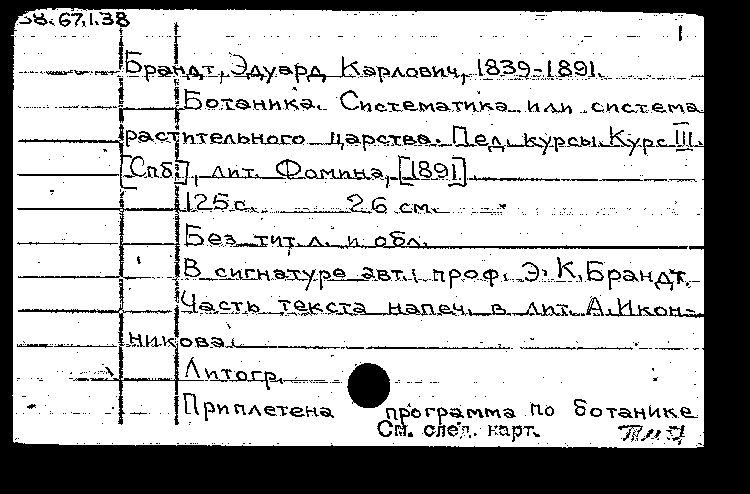 38.67.1.38
1
Брандт, Эдуард Карлович, 1839-1891.
Ботаника. Систематика или система
растительного царства. Пед. курсы. Курс III.
[Спб.], лит. Фомина, [1891].
125 с. 26 см.
Без тит. л. и обл.
В сигнатуре авт.: проф. Э. К. Брандт.
Часть текста напеч. в лит. А. Икон-
никова.
Литогр.
Приплетена программа по ботанике
См. след. карт.